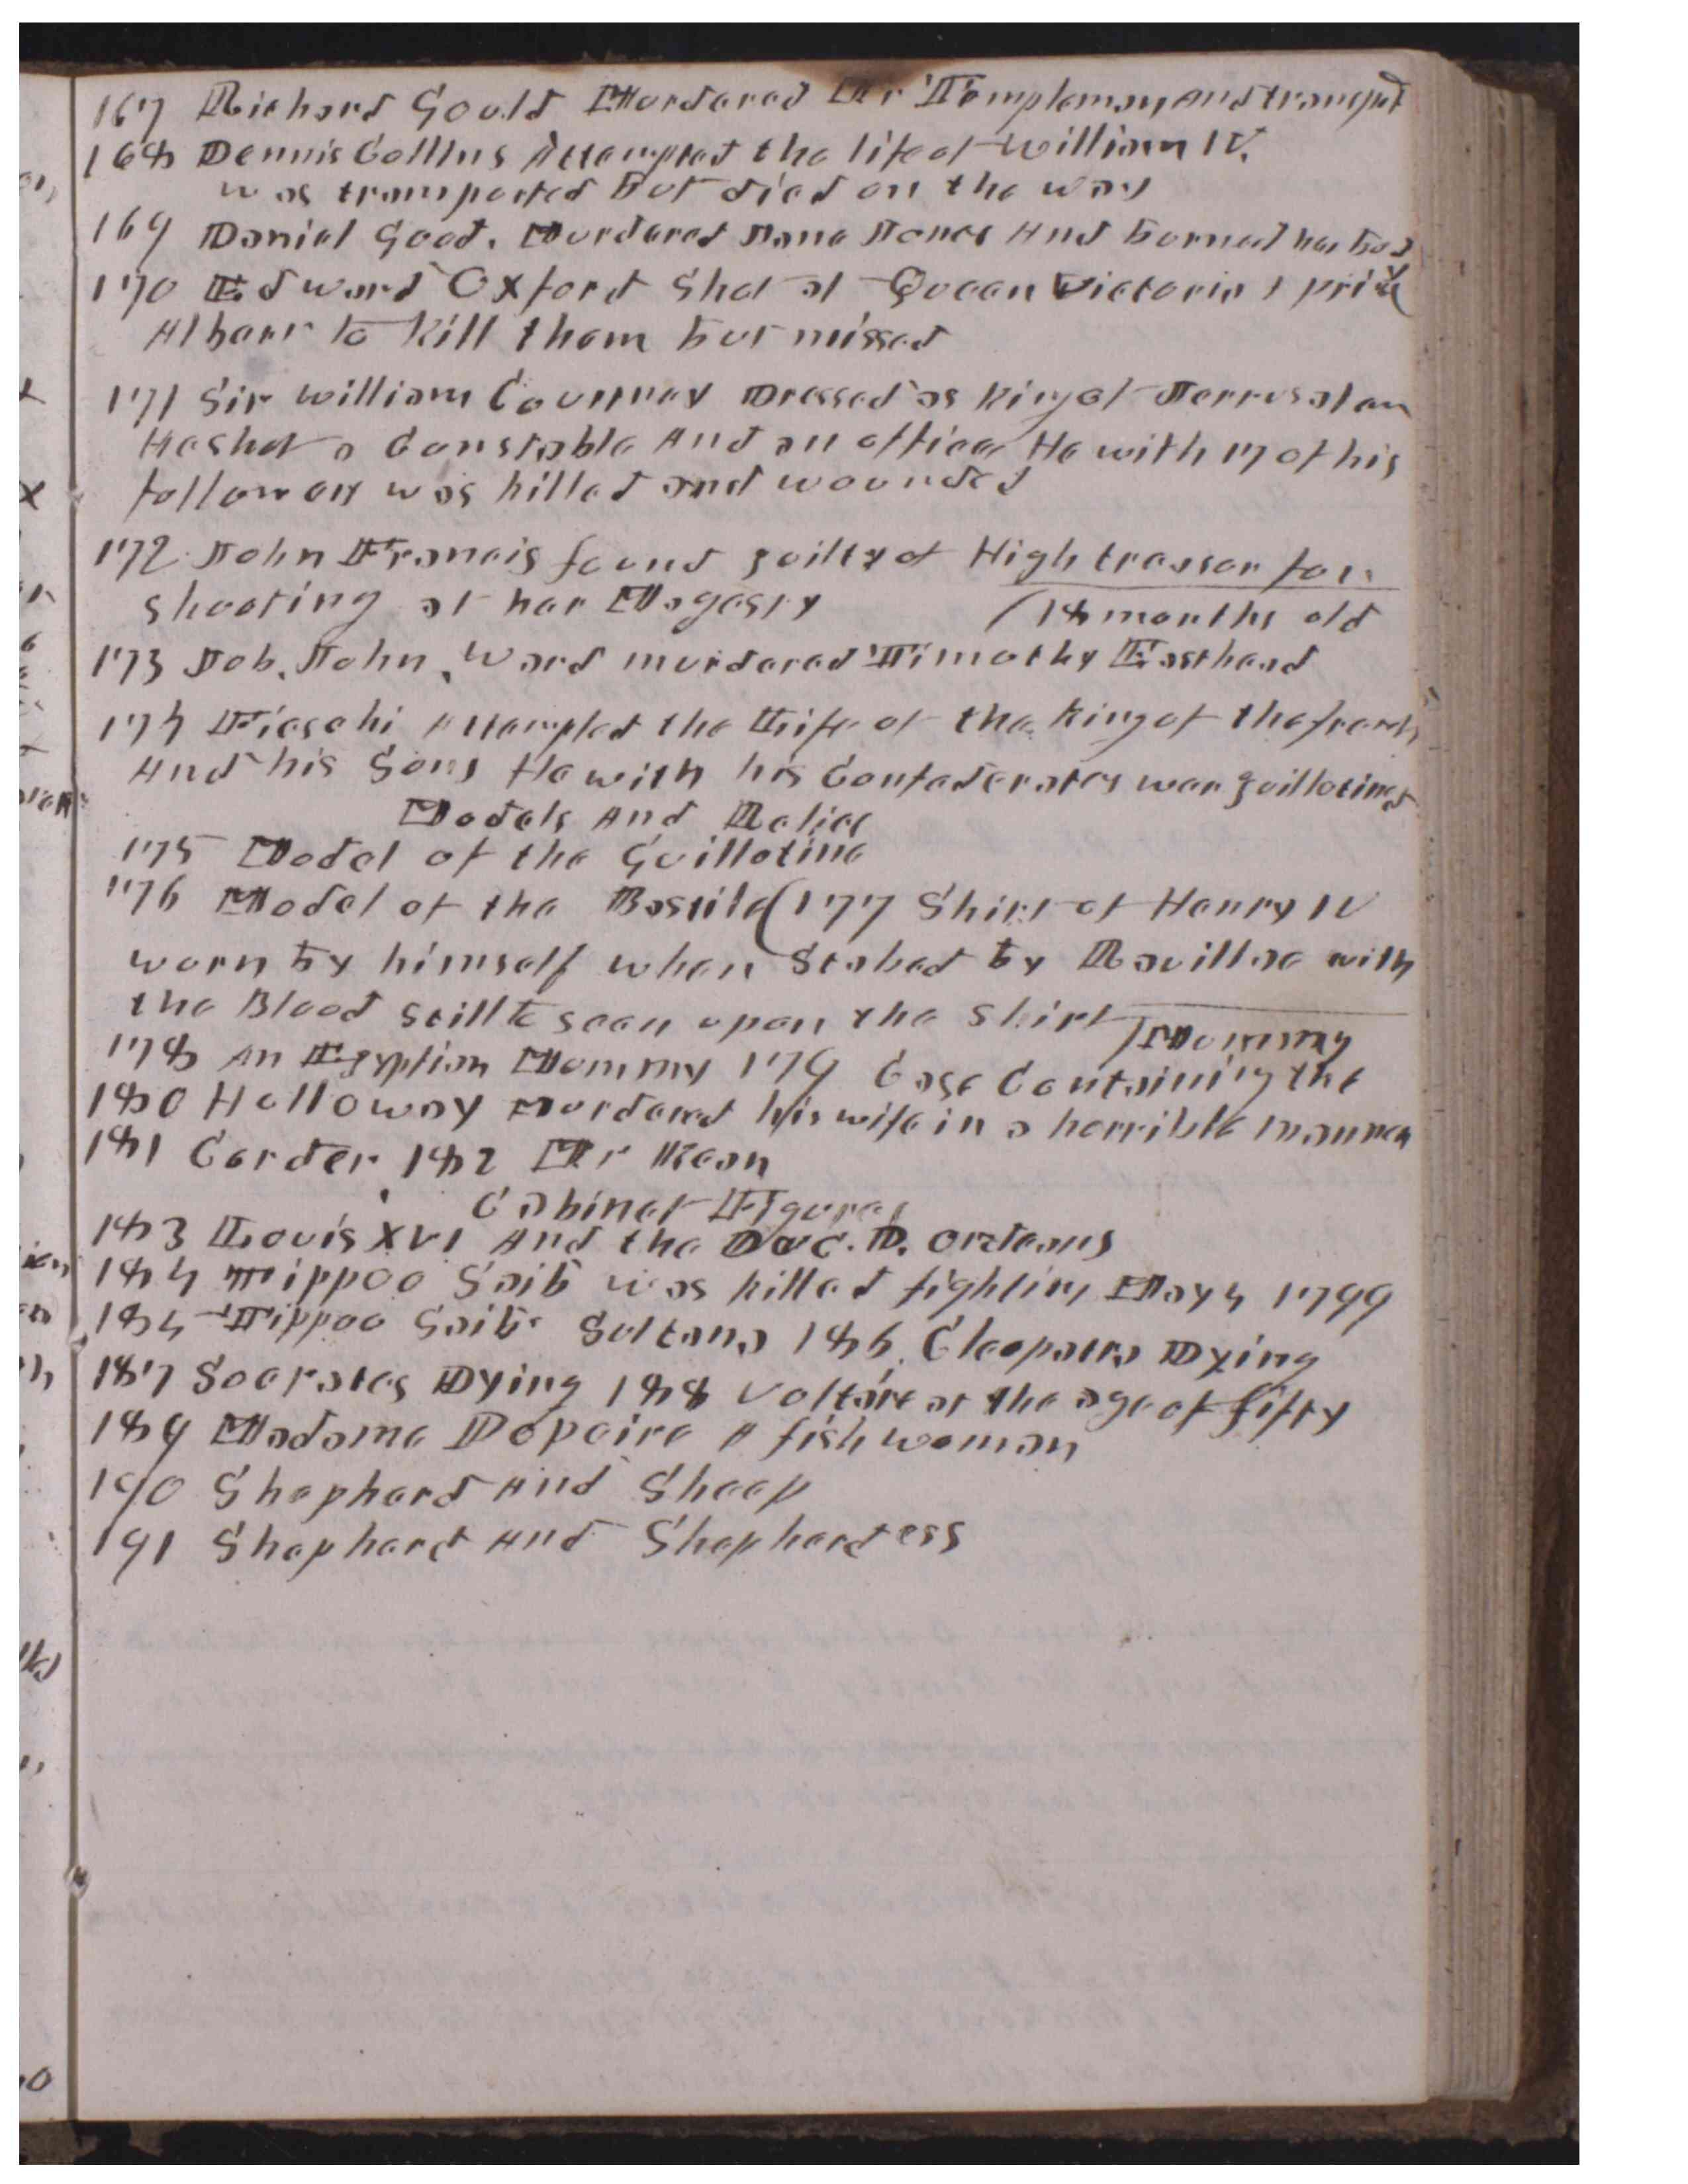 167 Richard Gould Murdered Mr Templeman and transpt
168 Dennis Collins Attempted the life of William IV.
was transported but died on the way
169 Daniel Good. Murdered Jane Jones And burned her bod
170 Edward Oxford Shot at Queen Victoria & prin
Albart to kill them but missed
171 Sir william Courtney Dressed as King of Jerrusalam
He shot a Constable And an officer He with 17 of his
followers was killed and wounded
172 John Francis found guilty of High treason for
shooting at her Magesty (18 months old
173 Job. John. Ward murdered Timothy Easthead
174 Fieschi Attempted the Life of the King of the french
And his Sons He with his Confederates war guillotined
Models And Relics
175 Model of the Guillotine
176 Model of the Bastile (177 Shirt of Henry IV
worn by himself when Stabed by Ravillac with
the Blood still to seen upon the Shirt
178 An Egyption Mommy 179 Case Containing the / Mommy
180 Holloway murdered his wife in a horrible manner
181 Corder. 182 Mr Kean
Cabinet Figures
183 Louis XVI And the Duc. D. Orleans
184 Tippoo Saib was killed fighting May 4 1799
185 Tippoo Saib Sultana 186. Cleopatra Dying
187 Socrates Dying 188 Voltare at the age of fifty
189 Madame Dopaire A fish woman
190 Shephard And Sheep
191 Shephard And Shephardess